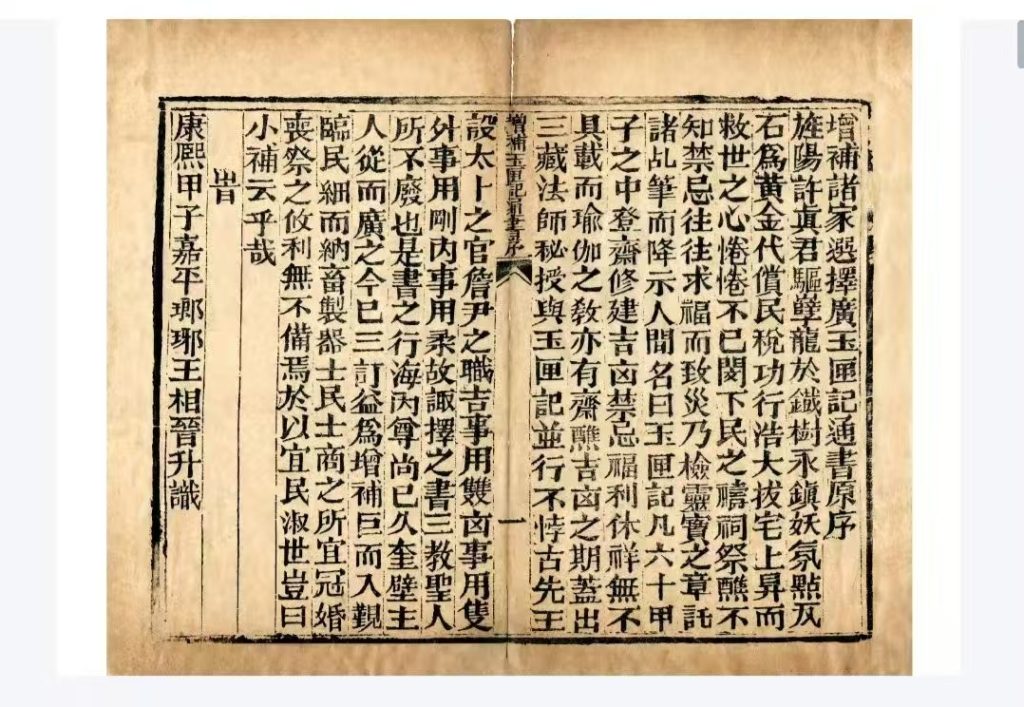 增補諸家選擇廣玉匣記通書原序
旌陽許眞君驅孽龍於鐵樹永鎮妖氛點瓦
石爲黃金代償民稅功行浩大拔宅上昇而
救世之心惓惓不已閔下民之禱祠祭醮不
知禁忌往往求福而致災乃檢靈寶之章託
諸乩筆而降示人間名曰玉匣記凡六十甲
子之中登齋修建吉凶禁忌福利休祥無不
具載而瑜伽之敎亦有齋醮吉凶之期蓋出
三藏法師秘授與玉匣記並行不悖古先王
增補玉匣記通書序
一
設太卜之官詹尹之職吉事用雙凶事用隻
外事用剛內事用柔故諏擇之書三教聖人
所不廢也是書之行海內尊尚已久奎壁主
人從而廣之今已三訂益爲增補巨而入覲
臨民細而納畜製器士民士商之所宜冠婚
喪祭之攸利無不備焉於以宜民淑世豈曰
小補云乎哉
旹
康熙甲子嘉平瑯琊王相晉升識